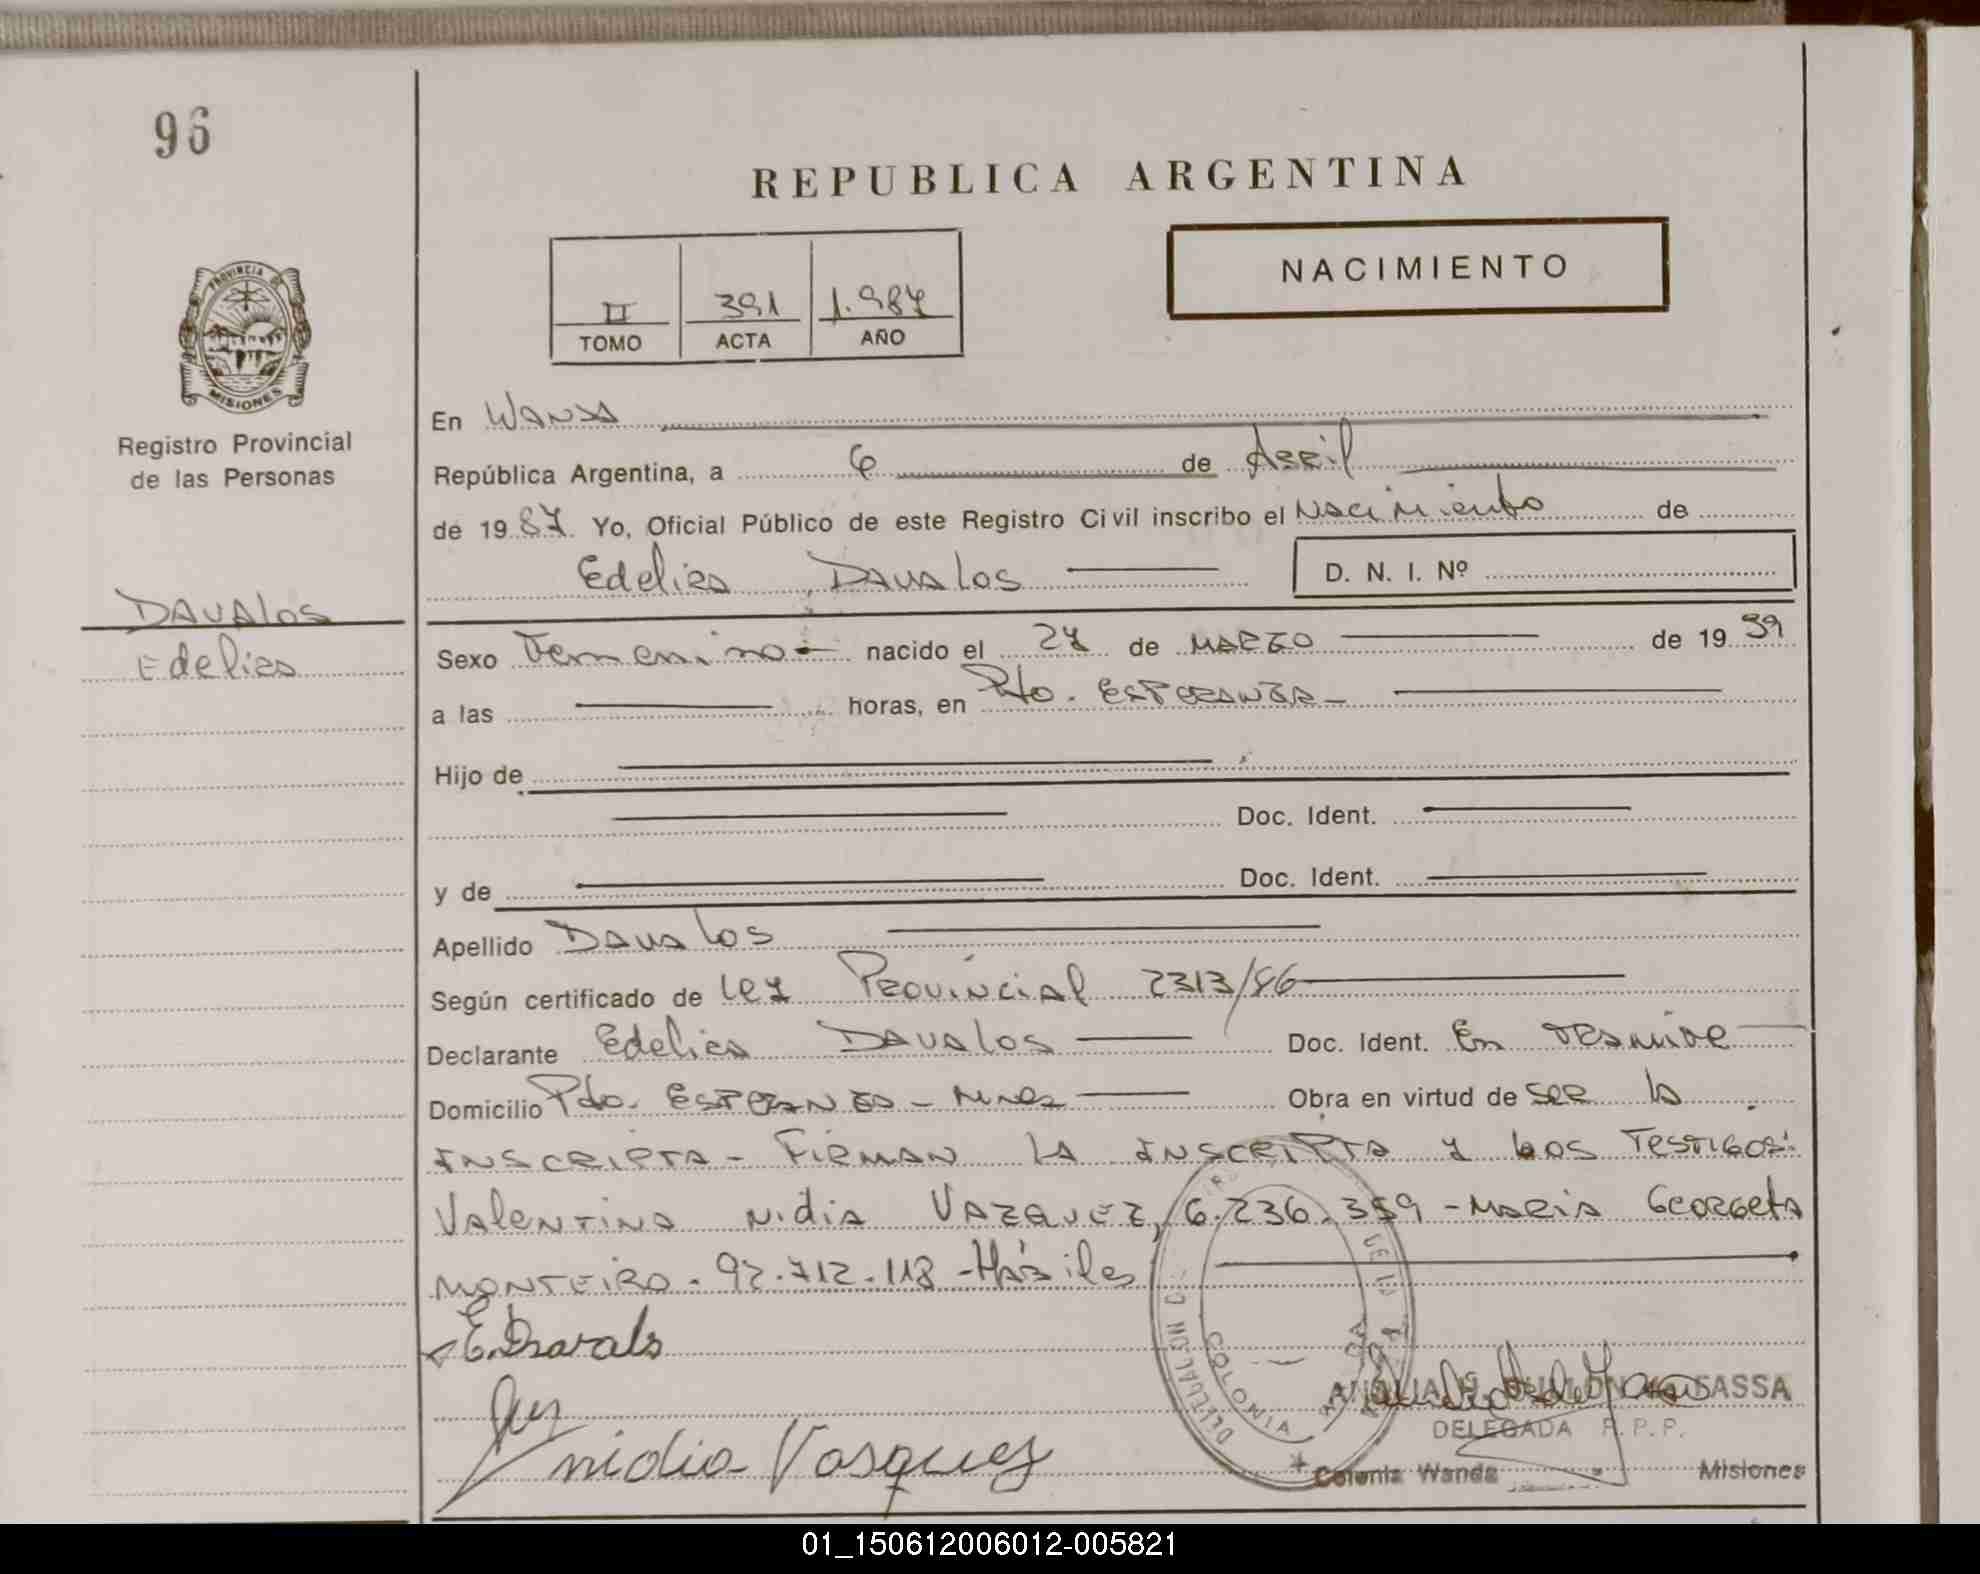 96
REPUBLICA ARGENTINA
NACIMIENTO
II 391 1.987
TOMO ACTA AÑO
PROVINCIA DE
MISIONES
Registro Provincial
de las Personas
DAVALOS
Edelira
En WANDA
República Argentina, a 6 de Abril
de 1987 Yo, Oficial Público de este Registro Civil inscribo el Nacimiento de
Edelira DAVALOS D. N. I. Nº
Sexo Femenino nacido el 27 de MARZO de 1939
a las horas, en Pto. ESPERANZA
Hijo de
Doc. Ident.
y de Doc. Ident.
Apellido DAVALOS
Según certificado de Ley Provincial 2313/86
Declarante Edelira DAVALOS Doc. Ident. En TRAMITE
Domicilio Pto. ESPERANZA - Mnes Obra en virtud de SER la
INSCRIPTA - FIRMAN LA INSCRIPTA y LOS TESTIGOS:
Valentina Nidia VAZQUEZ, 6.236.359 - MARIA Georgeta
MONTEIRO - 92.712.118 - Hábiles
E. Davals
nidia Vasquez
DELEGADA R. P. P.
Colonia Wanda Misiones
01_150612006012-005821